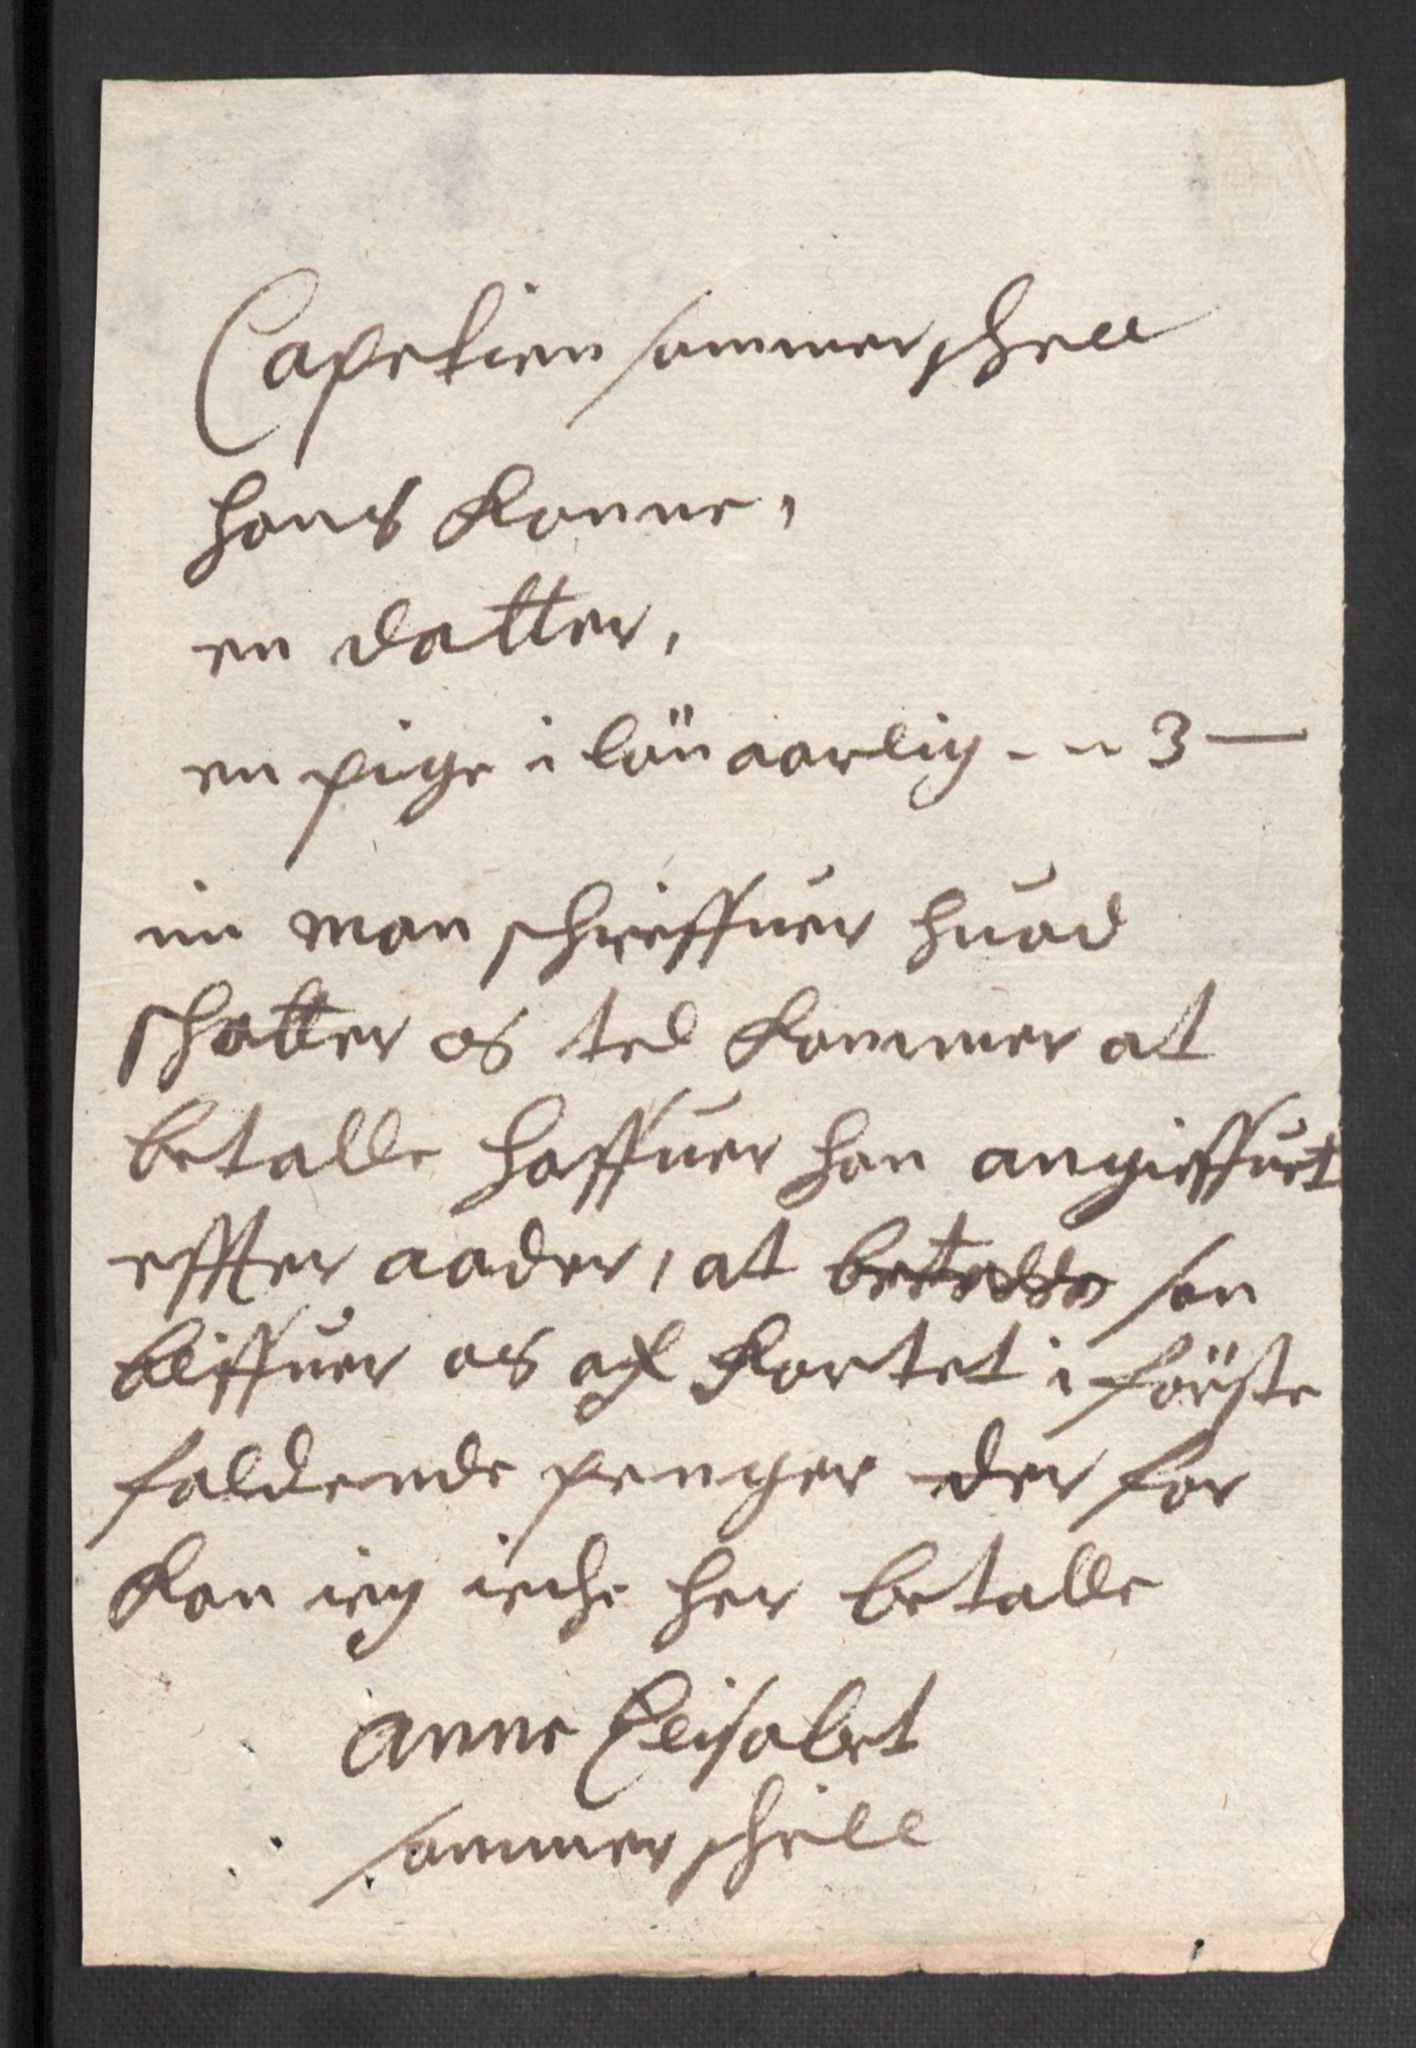 Capetien sommerschell
hans Konne,
en datter,
en pige i lön aarlig - - 3 —
min man schrieffuer huad
schatter os tel kommer at
betalle haffuer han angieffuet
effter aader, at betalle san
bliffuer os af kortet i förste
faldende penger der for
kan ieg iche her betalle
Anne Elisabet
sommerschill